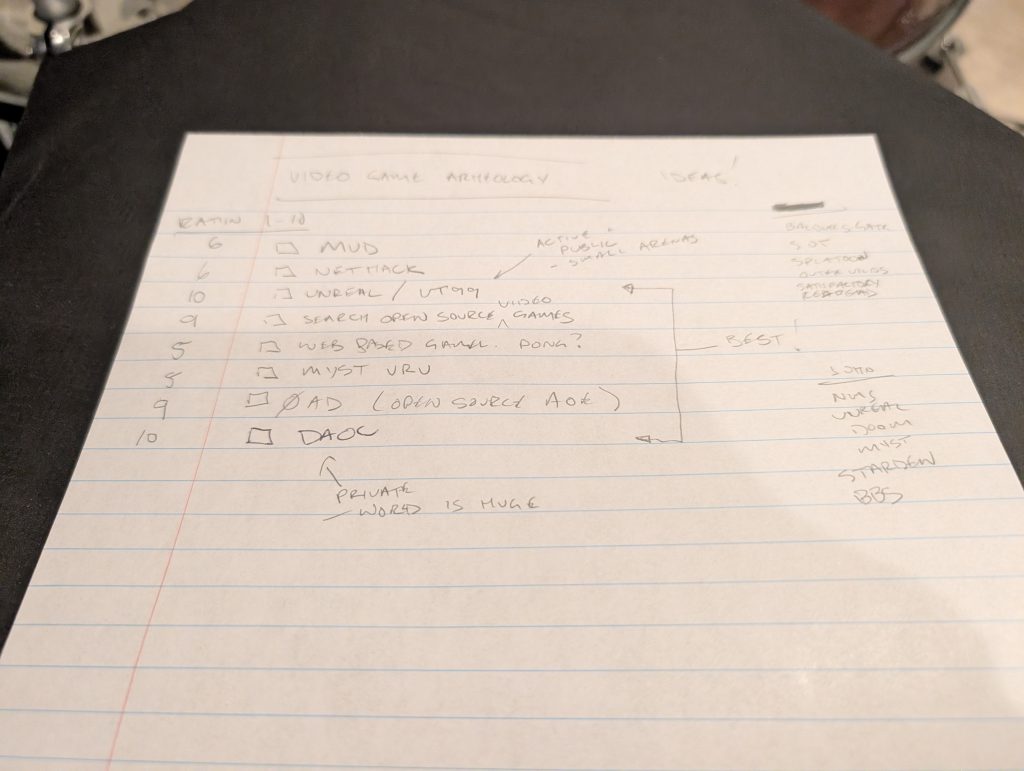 VIDEO GAME ARHEOLOGY
IDEAS!
RATIN 1-10
6 MUD
6 NETHACK
10 UNREAL / UT99
9 SEARCH OPEN SOURCE VIDEO GAMES
5 WEB BASED GAME. PONG?
8 MYST URU
9 ØAD (OPEN SOURCE AOE)
10 DAOC
ACTIVE
PUBLIC
- SMALL ARENAS
BEST!
PRIVATE
WORLD IS HUGE
SOT
SPLATOON
OUTER WILDS
SATISFACTORY
NMS
UNREAL
DOOM
MYST
STARDEW
BBS